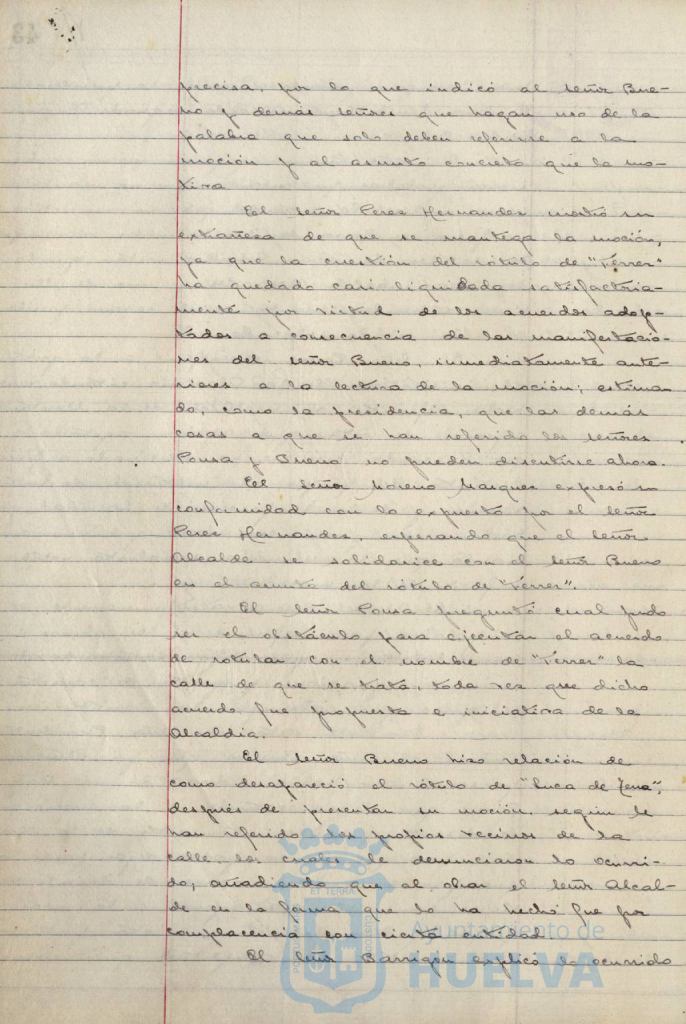 precisa, por lo que indicó al señor Bue-
no y demás señores que hagan uso de la
palabra que solo deben referirse a la
moción y al asunto concreto que la mo-
tiva
El señor Perez Hernandez mostró su
extrañeza de que se mantega la moción,
ya que la cuestión del rótulo de "Ferrer"
ha quedado casi liquidada satisfactoria-
mente por virtud de los acuerdos adop-
tados a consecuencia de las manifestacio-
nes del señor Bueno, inmediatamente ante-
riores a la lectura de la moción; estiman-
do, como la presidencia, que las demás
cosas a que se han referido los señores
Ponsa y Bueno no pueden discutirse ahora.
El señor Moreno Marquez expresó su
conformidad con lo expuesto por el señor
Perez Hernandez, esperando que el señor
Alcalde se solidarice con el señor Bueno
en el asunto del rótulo de "Ferrer".
El señor Ponsa preguntó cual pudo
ser el obstáculo para ejecutar el acuerdo
de rotular con el nombre de "Ferrer" la
calle de que se trata, toda vez que dicho
acuerdo fue propuesta e iniciativa de la
Alcaldia.
El señor Bueno hizo relación de
como desapareció el rótulo de "Luca de Tena",
después de presentar su moción, según le
han referido los propios vecinos de la
calle, los cuales le denunciaron lo ocurri-
do, añadiendo que al obrar el señor Alcal-
de en la forma que lo ha hecho fue por
complacencia con cierta entidad
El señor Barrigón explicó lo ocurrido
Ayuntamiento de
HUELVA